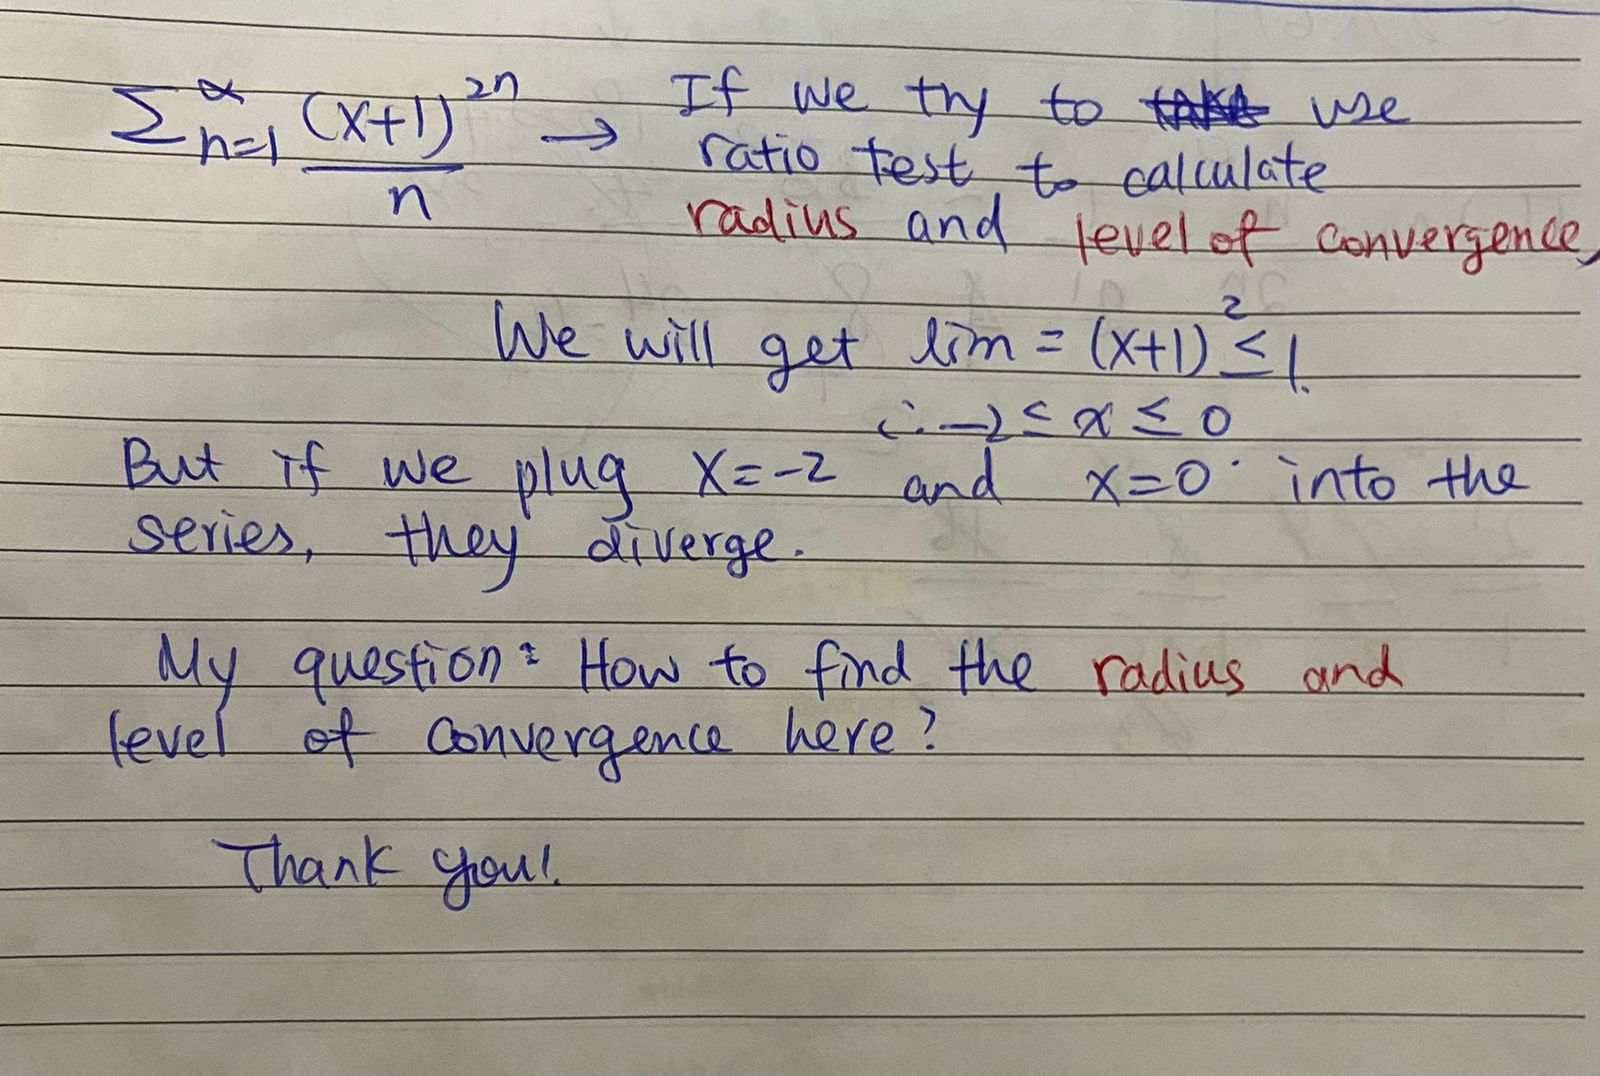 ∑_{n=1}^{∞} (x+1)^{2n} / n → If we try to use
ratio test to calculate
radius and level of convergence,
We will get lim = (x+1)^2 ≤ 1.
∴ -2 ≤ x ≤ 0
But if we plug x=-2 and x=0 into the
series, they diverge.
My question: How to find the radius and
level of convergence here?
Thank you!